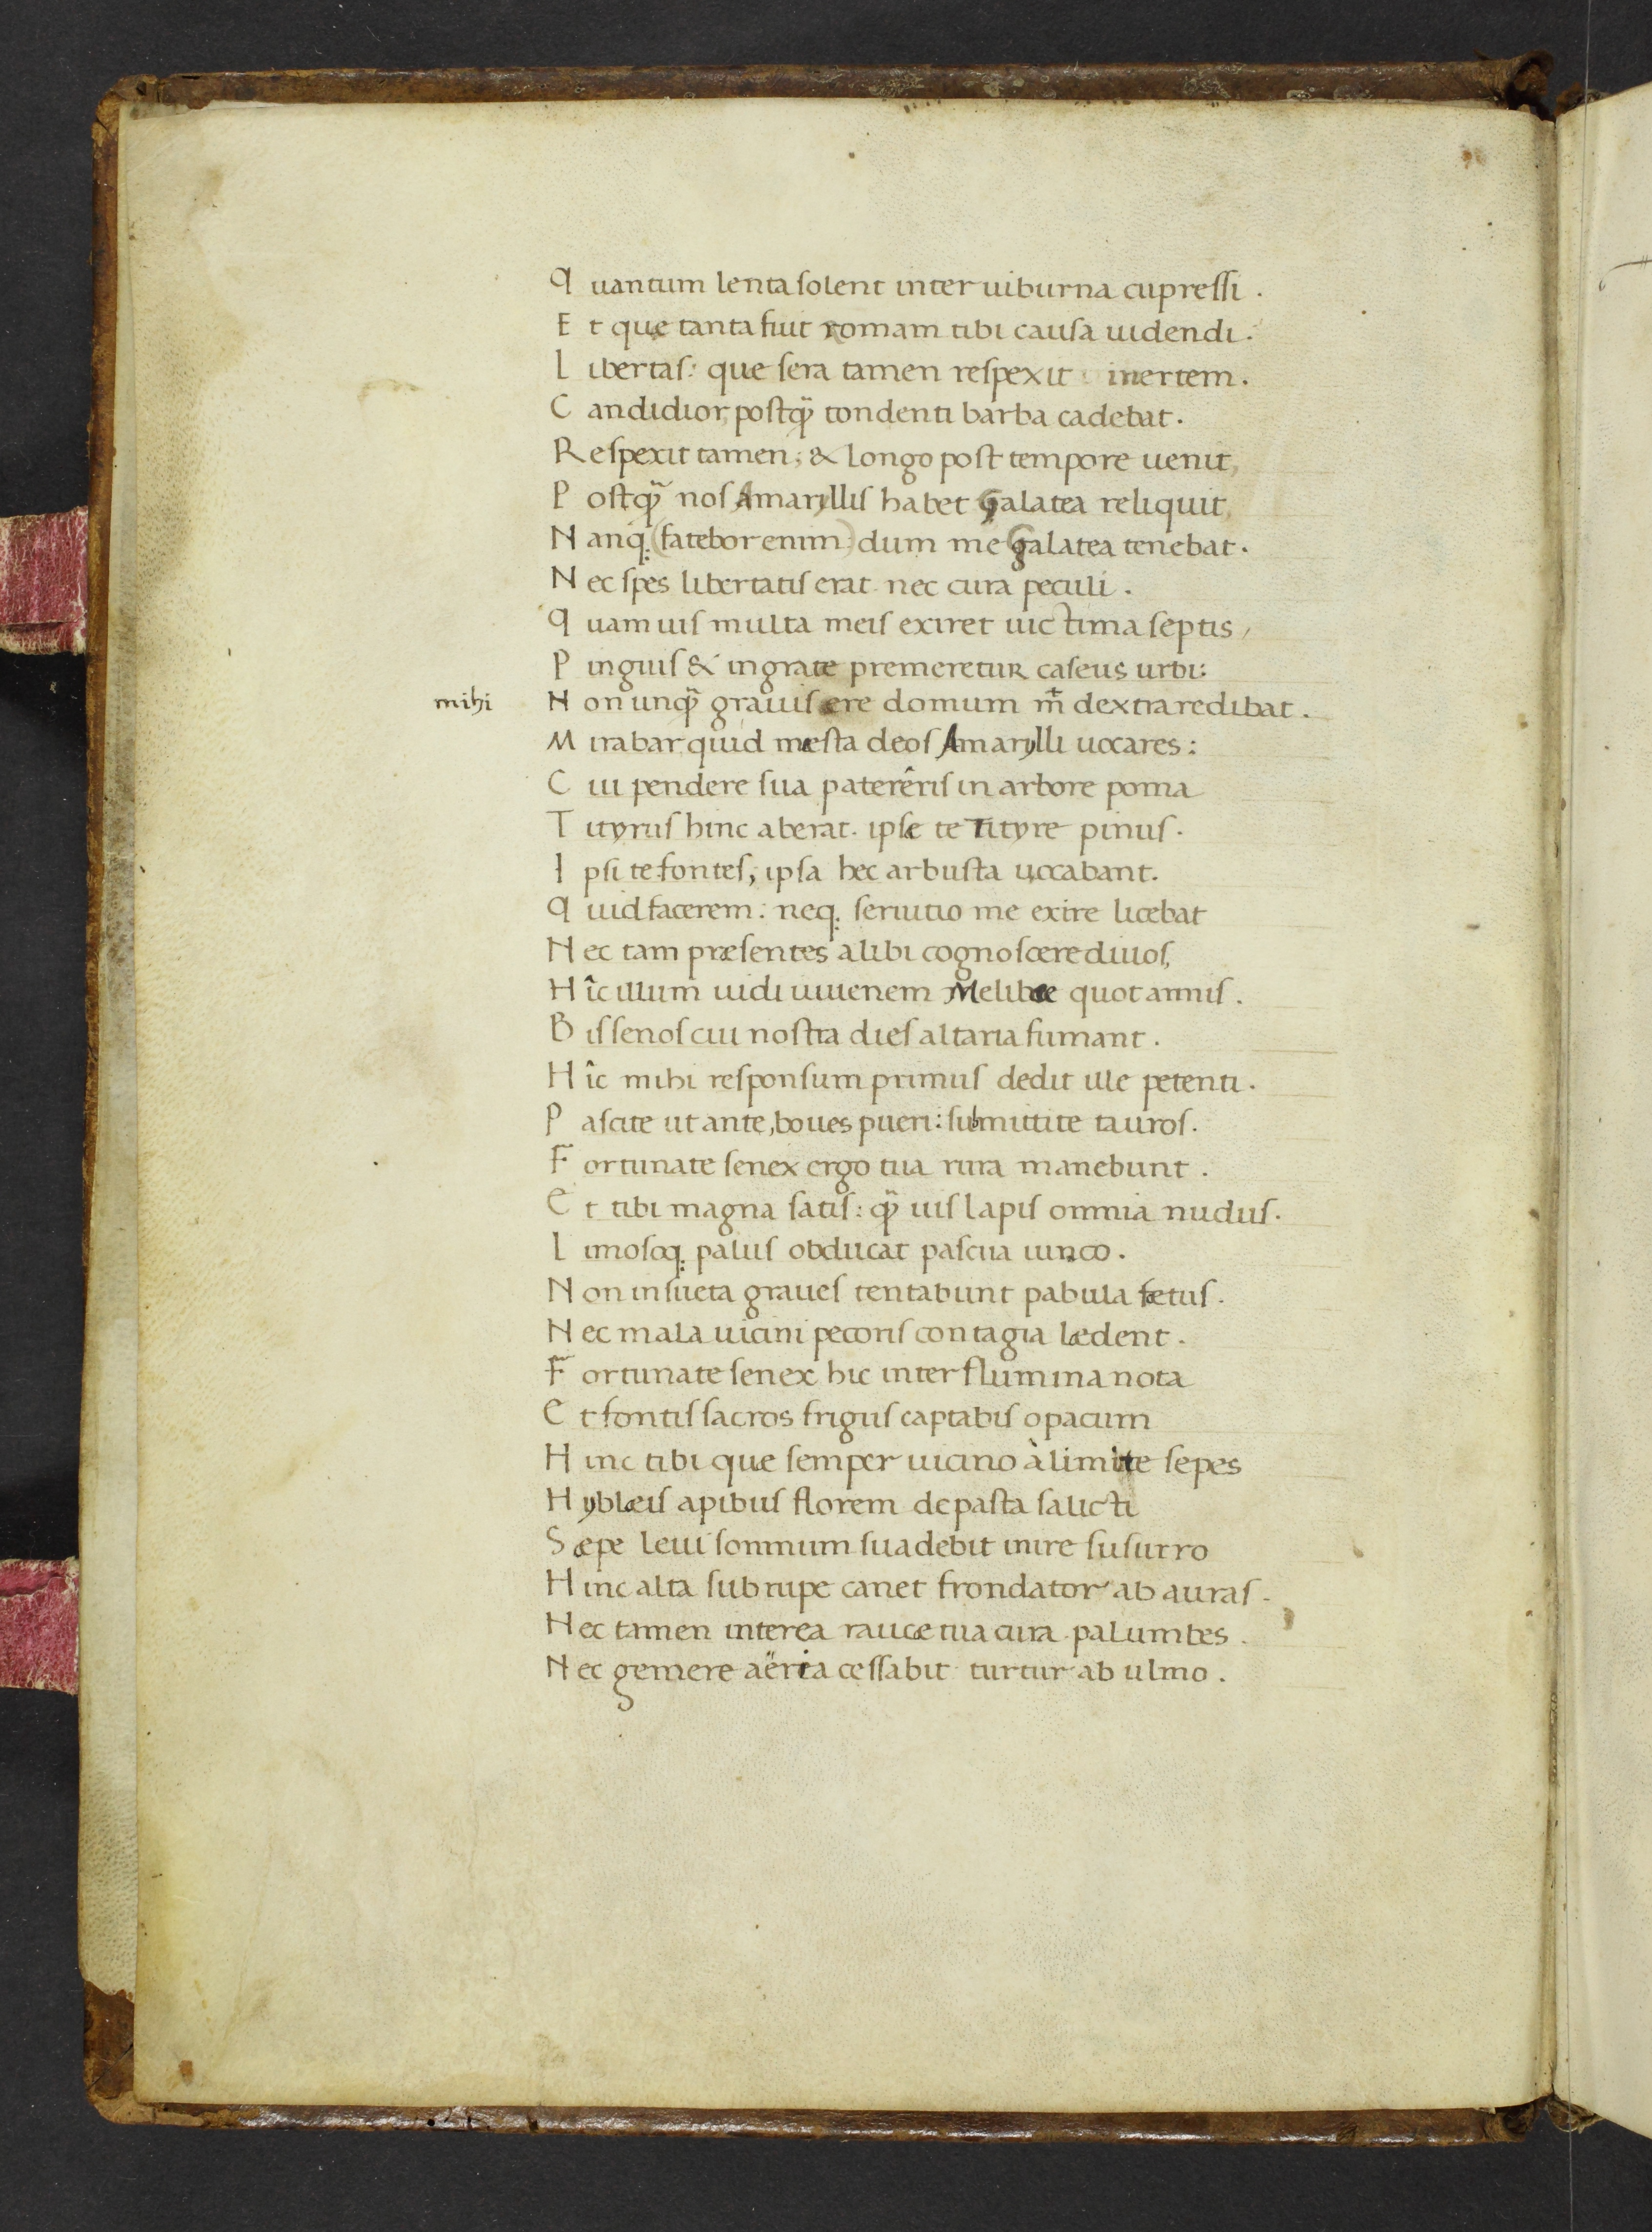 Quantum lenta solent inter uiburna cupressi.
Et que tanta fuit romam tibi causa uidendi.
Libertas: que sera tamen respexit inertem.
Candidior, postq̃ tondenti barba cadebat.
Respexit tamen; & longo post tempore uenit,
Postq̃ nos Amaryllis habet Galatea reliquit,
Nanq; (fatebor enim) dum me Galatea tenebat.
Nec spes libertatis erat nec cura peculi.
Quamuis multa meis exiret uictima septis,
Pinguis & ingrate premeretur caseus urbi:
mihi
Non unq̃ grauis ere domum m̄ dextra redibat.
Mirabar quid mesta deos Amarylli uocares:
Cui pendere sua paterêris in arbore poma
Tityrus hinc aberat. ipse te Tityre pinus.
Ipsi te fontes, ipsa hec arbusta uocabant.
Quid facerem: neq; seruitio me exire licebat
Nec tam præsentes alibi cognoscere diuos,
Hîc illum uidi iuuenem Melibœe quotannis.
Bis senos cui nostra dies altaria fumant.
Hîc mihi responsum primus dedit ille petenti.
Pascite ut ante, boues pueri: submittite tauros.
Fortunate senex ergo tua rura manebunt.
Et tibi magna satis: q̃uis lapis omnia nudus.
Limosoq; palus obducat pascua iunco.
Non insueta graues tentabunt pabula fœtus.
Nec mala uicini pecoris contagia lædent.
Fortunate senex hic inter flumina nota
Et fontis sacros frigus captabis opacum
Hinc tibi que semper uicino à limite sepes
Hyblæis apibus florem depasta salicti
Sæpe leui somnum suadebit inire susurro
Hinc alta sub rupe canet frondator ab auras.
Nec tamen interea rauce tua cura palumbes.
Nec gemere aëria cessabit turtur ab ulmo.